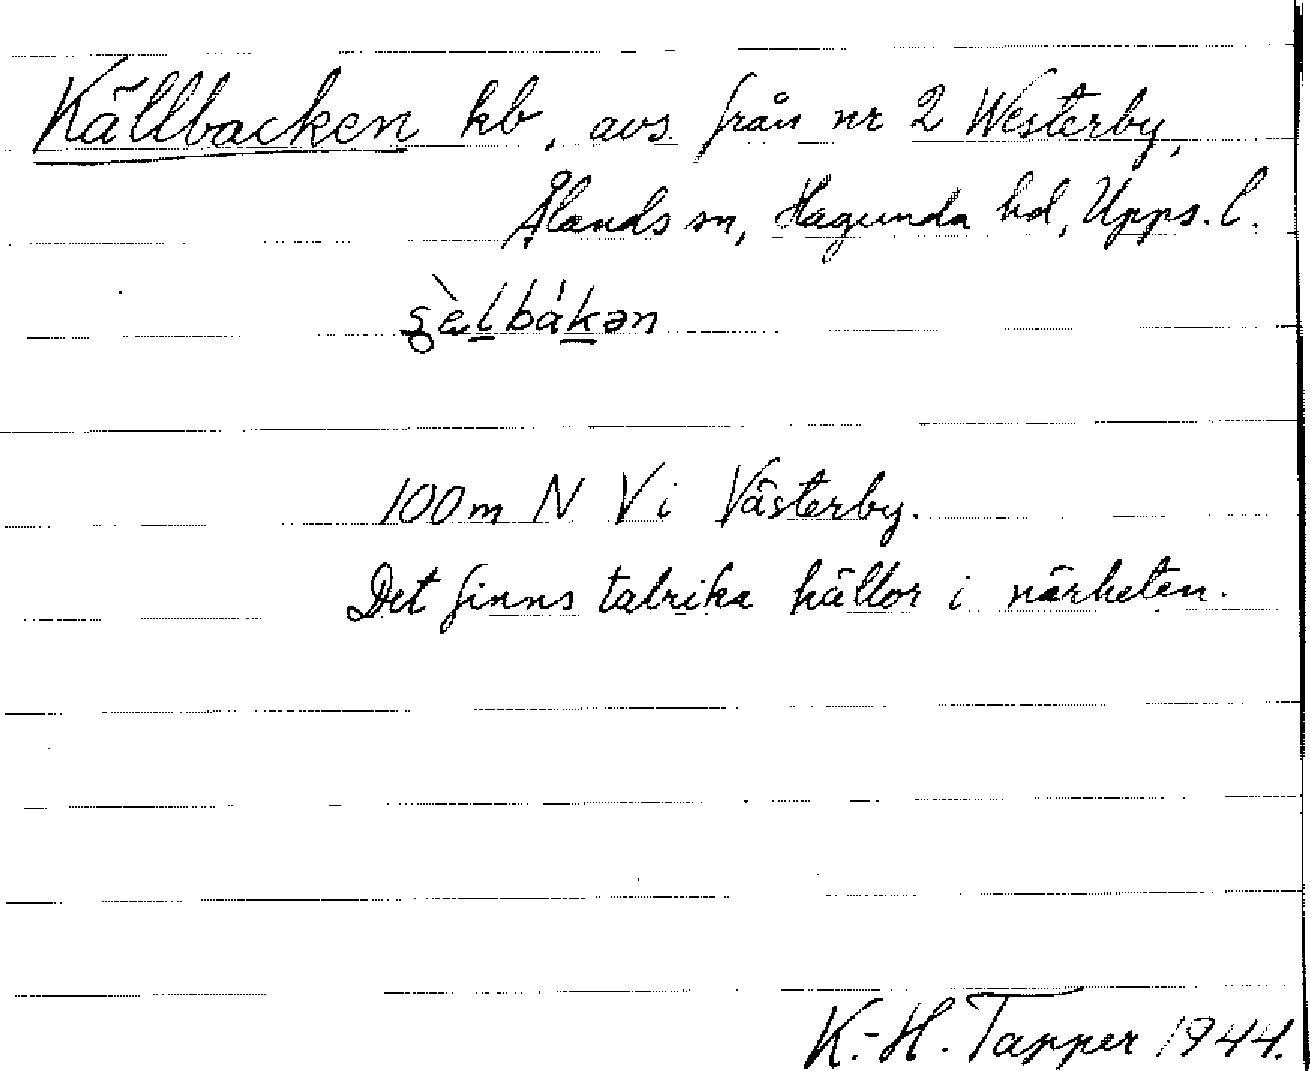 Källbacken kb, avs. från nr 2 Westerby,
Ålands sn, Hagunda hd, Upps. l.
s̥èlbákən
100 m N V i Västerby.
Det finns talrika källor i närheten.
K.-H. Tapper 1944.